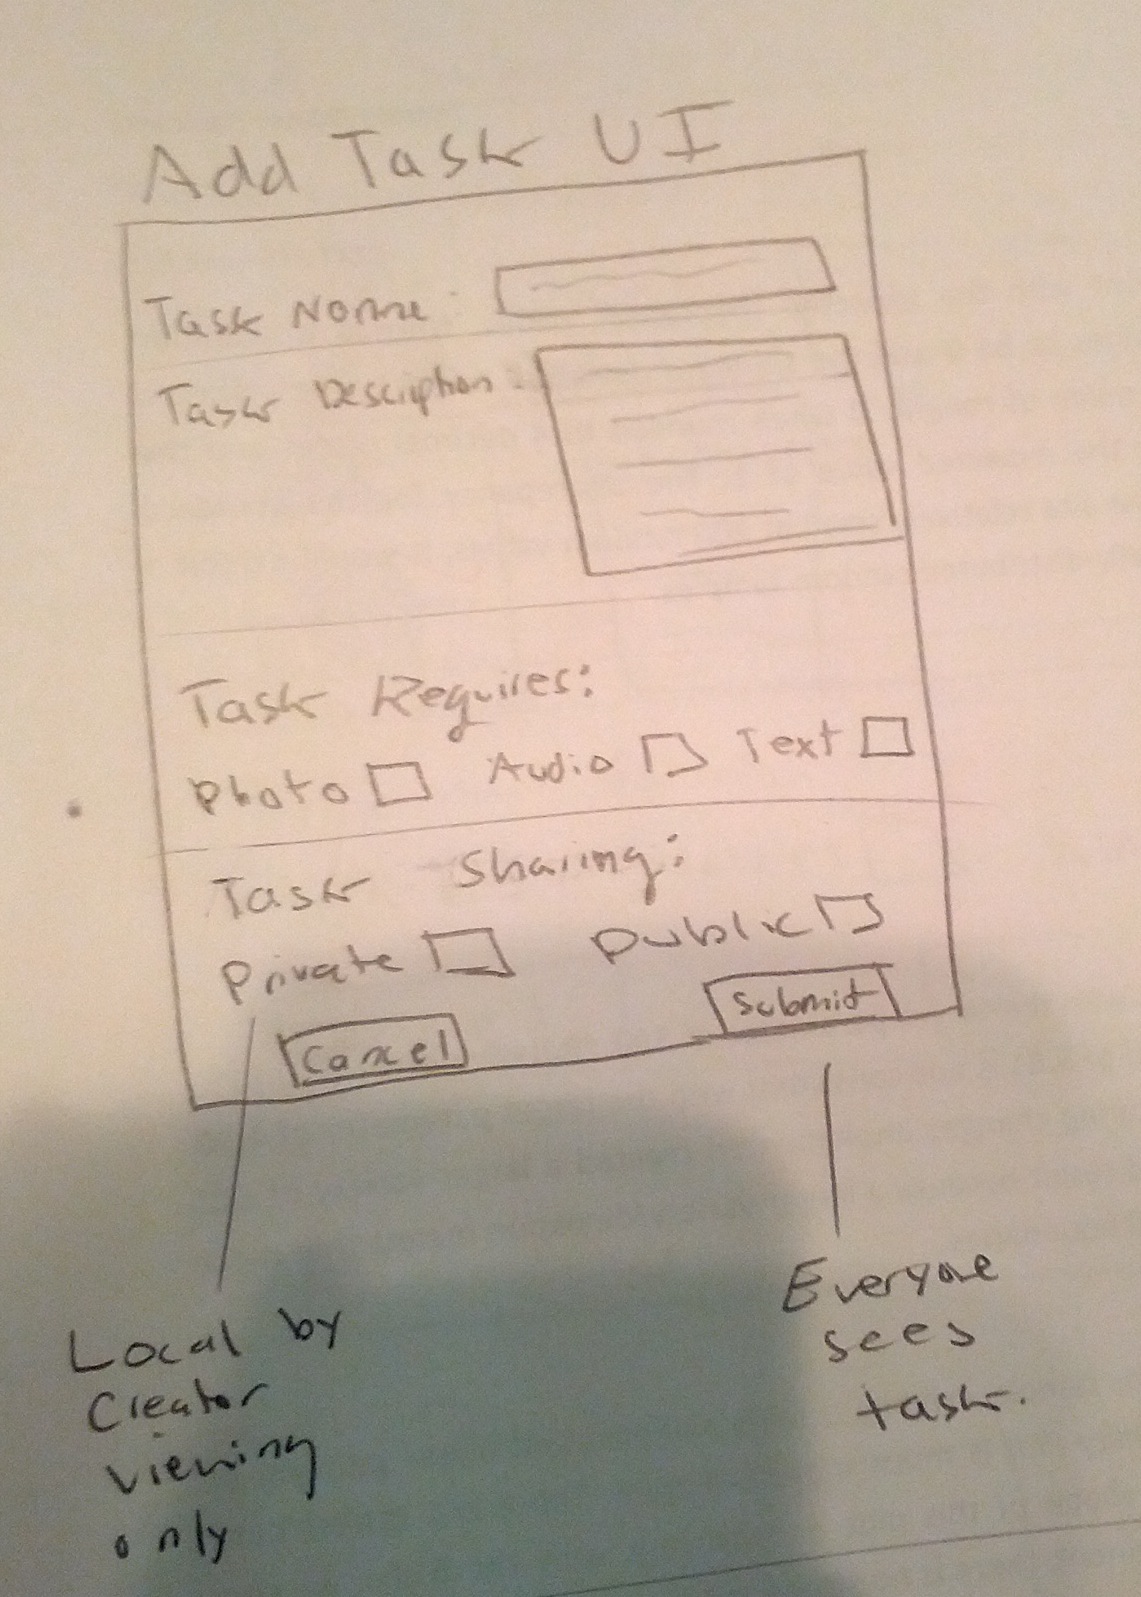 Add Task UI
Task Name:
Task Description:
Task Requires:
Photo Audio Text
Task Sharing:
Private Public
Cancel Submit
Local by
Creator
viewing
only
Everyone
sees
task.